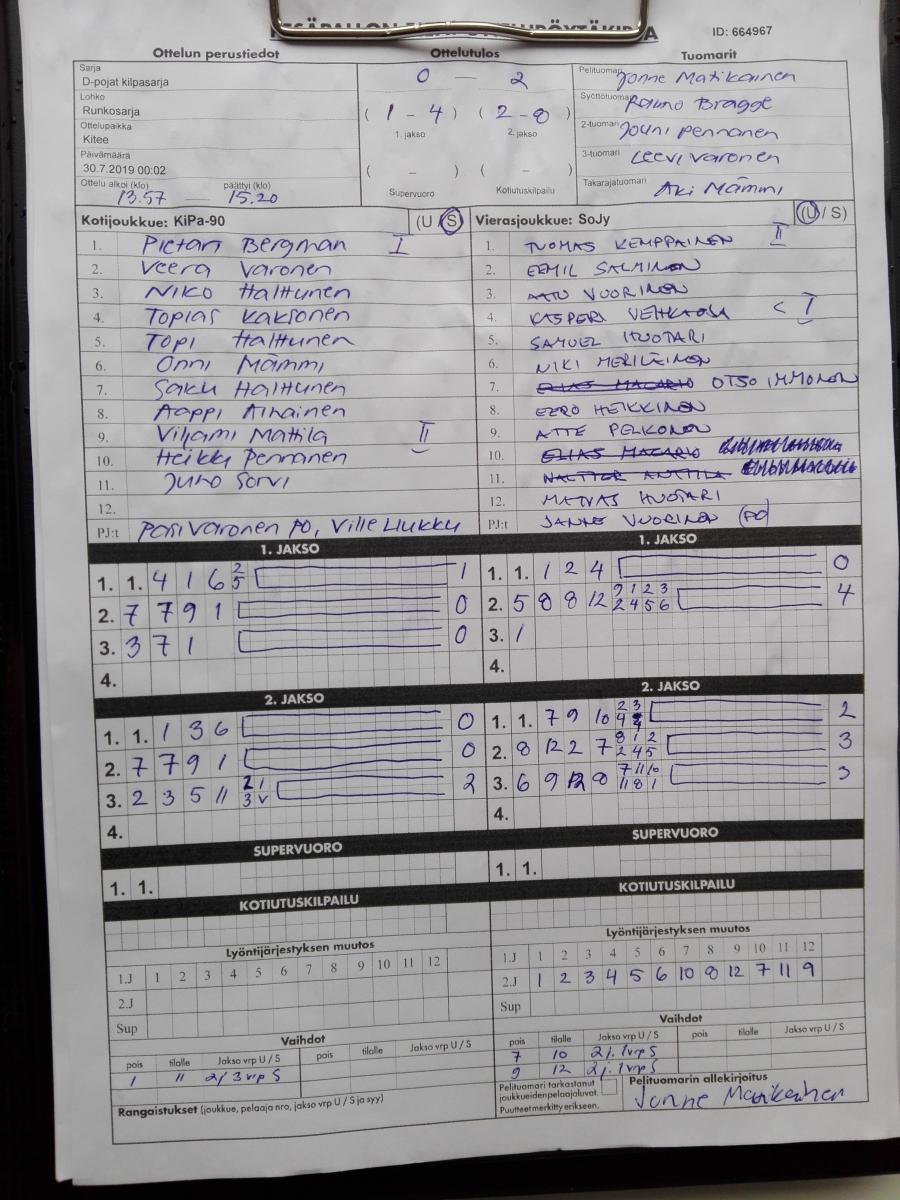 ID: 664967
Ottelun perustiedot Ottelutulos Tuomarit
Sarja
D-pojat kilpasarja
Lohko
Runkosarja
Ottelupaikka
Kitee
Päivämäärä
30.7.2019 00:02
Ottelu alkoi (klo) päättyi (klo)
13.57 — 15.20
0 — 2
( 1 - 4 ) ( 2 - 8 )
1. jakso 2. jakso
( - ) ( - )
Supervuoro Kotiutuskilpailu
Pelituomari Jonne Matikainen
Syöttötuomari Rauno Bragge
2-tuomari Jouni Pennanen
3-tuomari Leevi Varonen
Takarajatuomari Aki Mämmi
Kotijoukkue: KiPa-90 (U / S)
1. Pietari Bergman I
2. Veera Varonen
3. Niko Halttunen
4. Topias Kaksonen
5. Topi Halttunen
6. Onni Mämmi
7. Saku Halttunen
8. Aappi Aihainen
9. Viljami Mattila II
10. Heikki Pennanen
11. Juho Sorvi
12.
PJ:t Pasi Varonen PO, Ville Liukku
Vierasjoukkue: SoJy (U / S)
1. TUOMAS KEMPPAINEN II
2. EEMIL SALMINEN
3. AATU VUORINEN
4. KASPERI < I
5. SAMUEL HUOTARI
6. NIKI MERILÄINEN
7. ELIAS MACARIO OTSO IMMONEN
8. EERO HEIKKINEN
9. ATTE PELKONEN
10. ELIAS MACARIO
11. WALTTER ANTTILA
12. MATVAS HUOTARI
PJ:t JANNE VUORINEN (PO)
1. JAKSO
1. 1. 4 1 6 2 5 1
2. 7 7 9 1 0
3. 3 7 1 0
4.
1. JAKSO
1. 1. 1 2 4 0
2. 5 8 8 12 9 1 2 3 4
2 4 5 6
3. 1
4.
2. JAKSO
1. 1. 1 3 6 0
2. 7 7 9 1 0
3. 2 3 5 11 2 1 2
3 V
4.
2. JAKSO
1. 1. 7 9 10 2 3 2
4
2. 8 12 2 7 8 1 2 3
2 4 5
3. 6 9 12 8 7 11 10 3
11 8 1
4.
SUPERVUORO
1. 1.
SUPERVUORO
1. 1.
KOTIUTUSKILPAILU
KOTIUTUSKILPAILU
Lyöntijärjestyksen muutos
1.J 1 2 3 4 5 6 7 8 9 10 11 12
2.J
Sup
Lyöntijärjestyksen muutos
1.J 1 2 3 4 5 6 7 8 9 10 11 12
2.J 1 2 3 4 5 6 10 8 12 7 11 9
Sup
Vaihdot
pois tilalle Jakso vrp U / S pois tilalle Jakso vrp U / S
1 11 2j 3 vrp S
Vaihdot
pois tilalle Jakso vrp U / S pois tilalle Jakso vrp U / S
7 10 2j. 1vrp S
9 12 2j. 1vrp S
Rangaistukset (joukkue, pelaaja nro, jakso vrp U / S ja syy)
Pelituomari tarkastanut
joukkueiden pelaajaluvat.
Puutteet merkitty erikseen.
Pelituomarin allekirjoitus
Jonne Matikainen